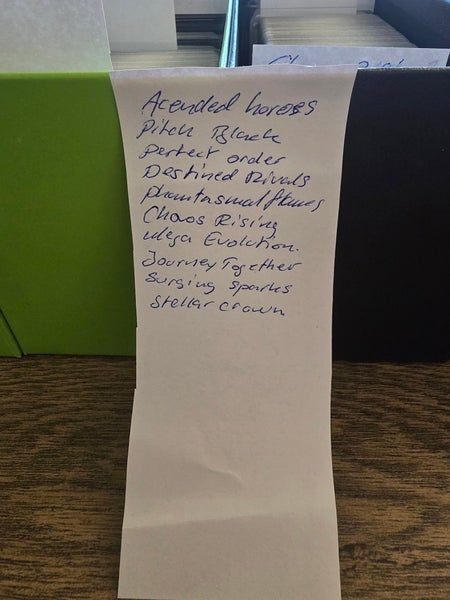 Acended heroes
Pitch Black
Perfect order
Destined Rivals
phantasmal flames
Chaos Rising
Mega Evolution.
Journey Together
Surging Sparks
Stellar Crown